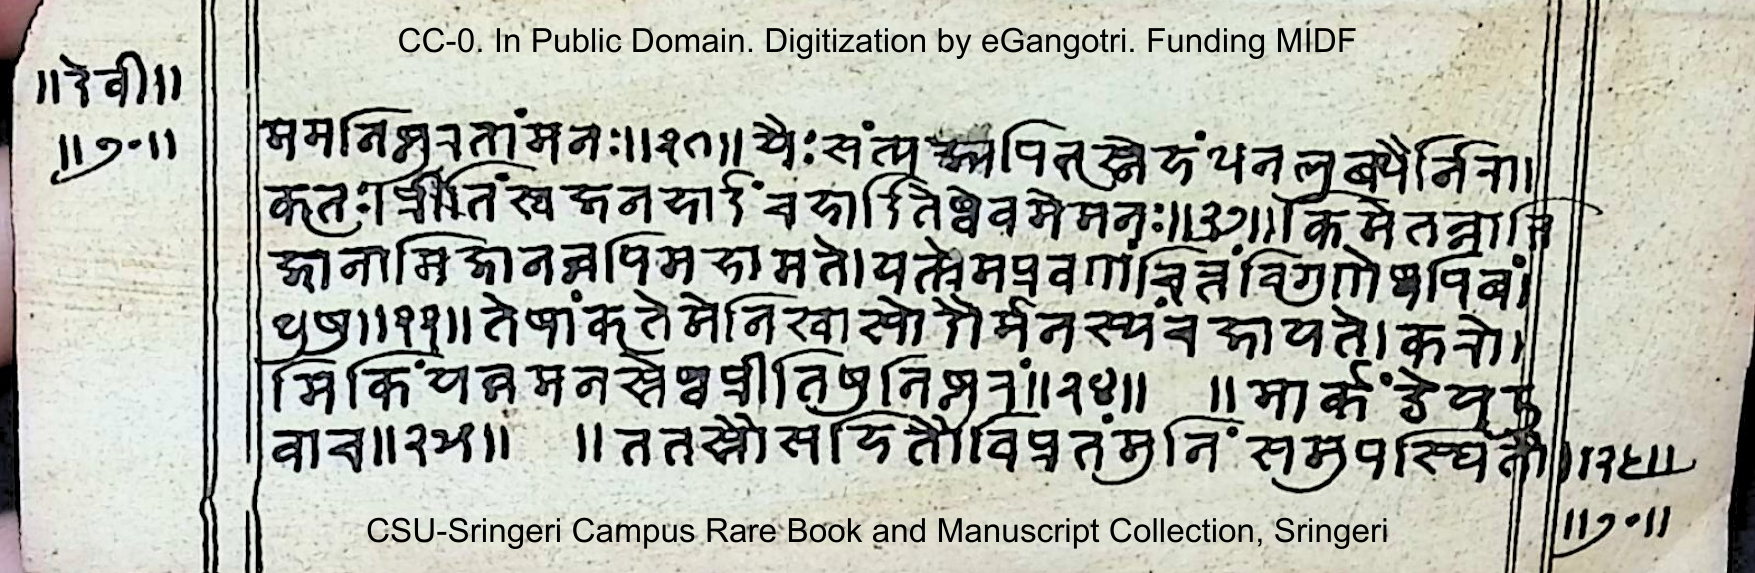 CC-0. In Public Domain. Digitization by eGangotri. Funding MIDF
॥देवी॥
॥७०॥
ममनिष्ठुरतांमनः॥३१॥यैःसंत्यज्यपितृस्नेहंधनलुब्धैर्निरा।
कृतः।प्रीतिंस्वजनहार्दंचहार्दितेष्वेवमेमनः॥३२॥किमेतन्नाभि
जानामिजानन्नपिमहामते।यत्प्रेमप्रवणंचित्तंविगुणेष्वपिबं
धुषु॥३३॥तेषांकृतेमेनिःश्वासोदौर्मनस्यंचजायते।करो।
मिकिंयन्नमनस्तेष्वप्रीतिषुनिष्ठुरं॥३४॥ ॥मार्कंडेयउ
वाच॥३५॥ ॥ततस्तौसहितौविप्रतंमुनिंसमुपस्थितौ॥३६॥
॥७०॥
CSU-Sringeri Campus Rare Book and Manuscript Collection, Sringeri